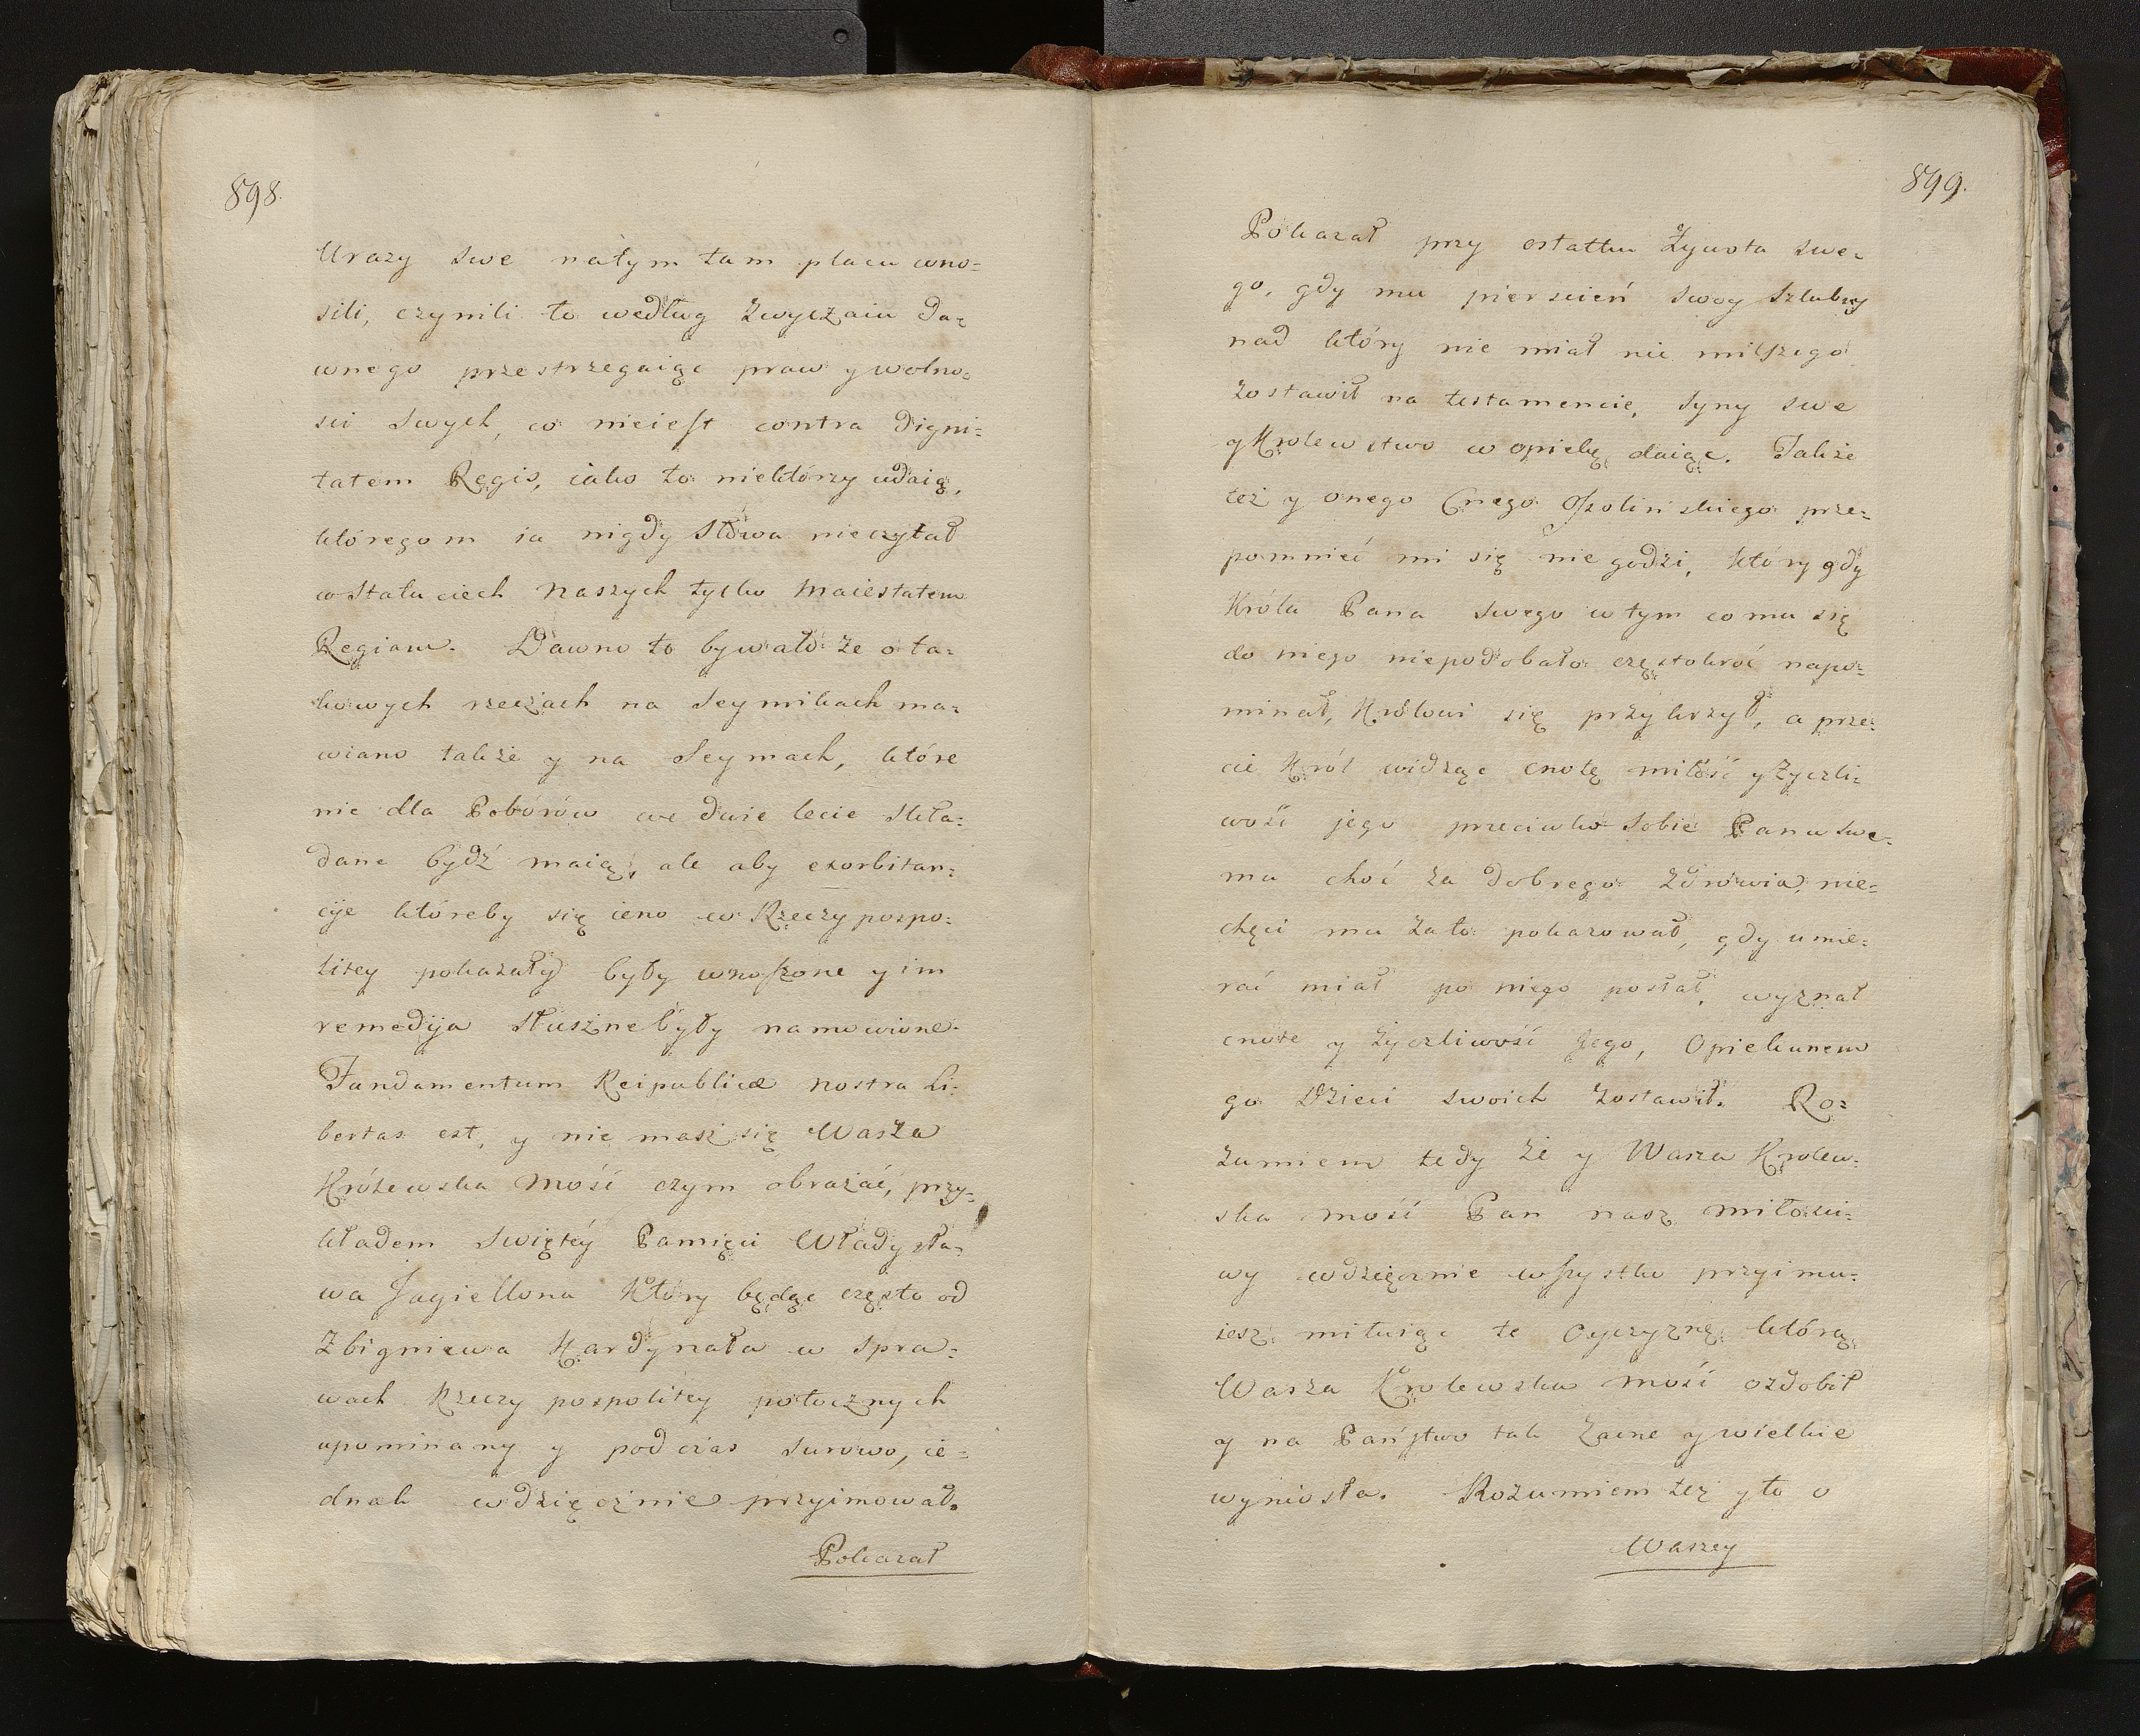 898.
Urazy swe natym tam placu wno=
sili, czynili to według zwyczaiu da=
wnego przestrzegaiąc praw y wolno=
sci swych, co nieiest contra digni=
tatem Regis, iako to niektórzy udaią,
któregom ia nigdy słowa nieczytał
w statuciech naszych tylko maiestatem
Regiam. Dawno to bywało że o ta=
kowych rzeczach na Seymikach ma=
wiano także y na Seymach, które
nie dla Poborów we dwie lecie skła=
dane bydź maią, ale aby exorbitan=
cye któreby się ieno w Rzeczypospo=
litey pokazały były wnoszone y im
remedija słuszne były namowione.
Fundamentum Reipublicæ nostra li=
bertas est, y nie masz się Wasza
Królewska mość czym obrażać, przy=
kładem swiętéy Pamięci Władysła=
wa Jagiellona który będąc często od
Zbigniewa Kardynała w spra=
wach Rzeczy pospolitey potocznych
upominany y pod czas surowo, ie=
dnak wdzięcznie przyimował.
Pokazał
899.
Pokazał przy ostatku Żywota swe=
go, gdy mu pierscień swoy szlubny
nad który nie miał nic milszego
zostawił na testamencie, syny swe
y Krolewstwo w opiekę daiąc. Także
też y onego Cnego Oszolińskiego prze=
pomnieć mi się nie godzi, który gdy
Króla Pana swego w tym co mu się
do niego niepodobało częstokroć napo=
minał, Królowi się przykrzył, a prze=
cie Król widząc cnotę miłość y życzli=
wość jego przeciwko sobie Panu swe=
mu choć za dobrego zdrowia, nie=
chęci mu zato pokazował, gdy umie=
rać miał po niego posłał, wyznał
cnote y życzliwość Jego, Opiekunem
go Dzieci swoich zostawił. Ro=
zumiem tedy że y Wasza Krolew=
ska mość Pan nasz miłosci=
wy wdzięcznie wszystko przyimu=
iesz miłuiąc te Oyczyznę którą
Wasza Krolewska mość ozdobił
y na Państwo tak zacne y wielkie
wyniosła. Rozumiem też y to o
Waszey